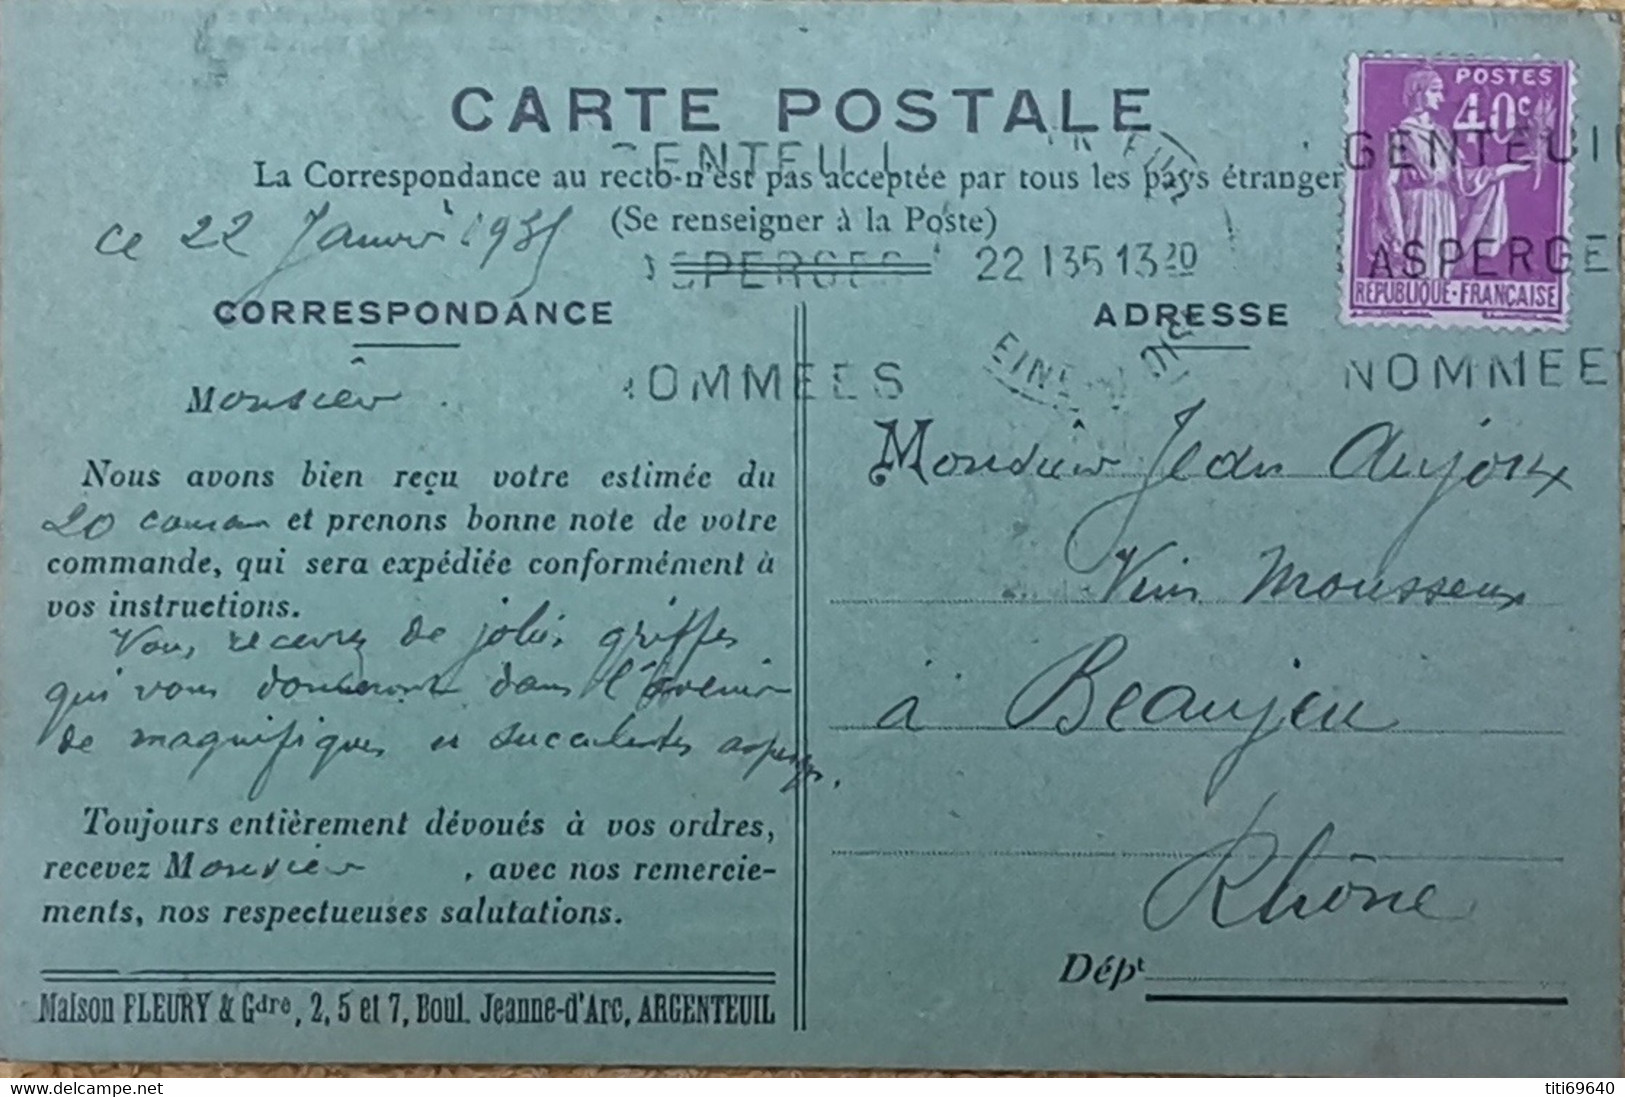 CARTE POSTALE
La Correspondance au recto n'est pas acceptée par tous les pays étranger
(Se renseigner à la Poste)
POSTES
40c
REPUBLIQUE-FRANÇAISE
GENTEUIL
ASPERGE
NOMMEE
ENTEUIL
SPERGES
OMMEES
22 1 35 13 20
ce 22 Janvier 1935
CORRESPONDANCE
Monsieur
Nous avons bien reçu votre estimée du
20 courant et prenons bonne note de votre
commande, qui sera expédiée conformément à
vos instructions.
Vous recevrez de jolies griffes
qui vous donneront dans l'avenir
de magnifiques et succulentes asperges.
Toujours entièrement dévoués à vos ordres,
recevez Monsieur, avec nos remercie-
ments, nos respectueuses salutations.
Maison FLEURY & Gdre, 2, 5 et 7, Boul. Jeanne-d'Arc, ARGENTEUIL
ADRESSE
Monsieur Jean Aujoux
Vins Mousseux
à Beaujeu
Rhône
Dépt
delcampe.net
titi69640